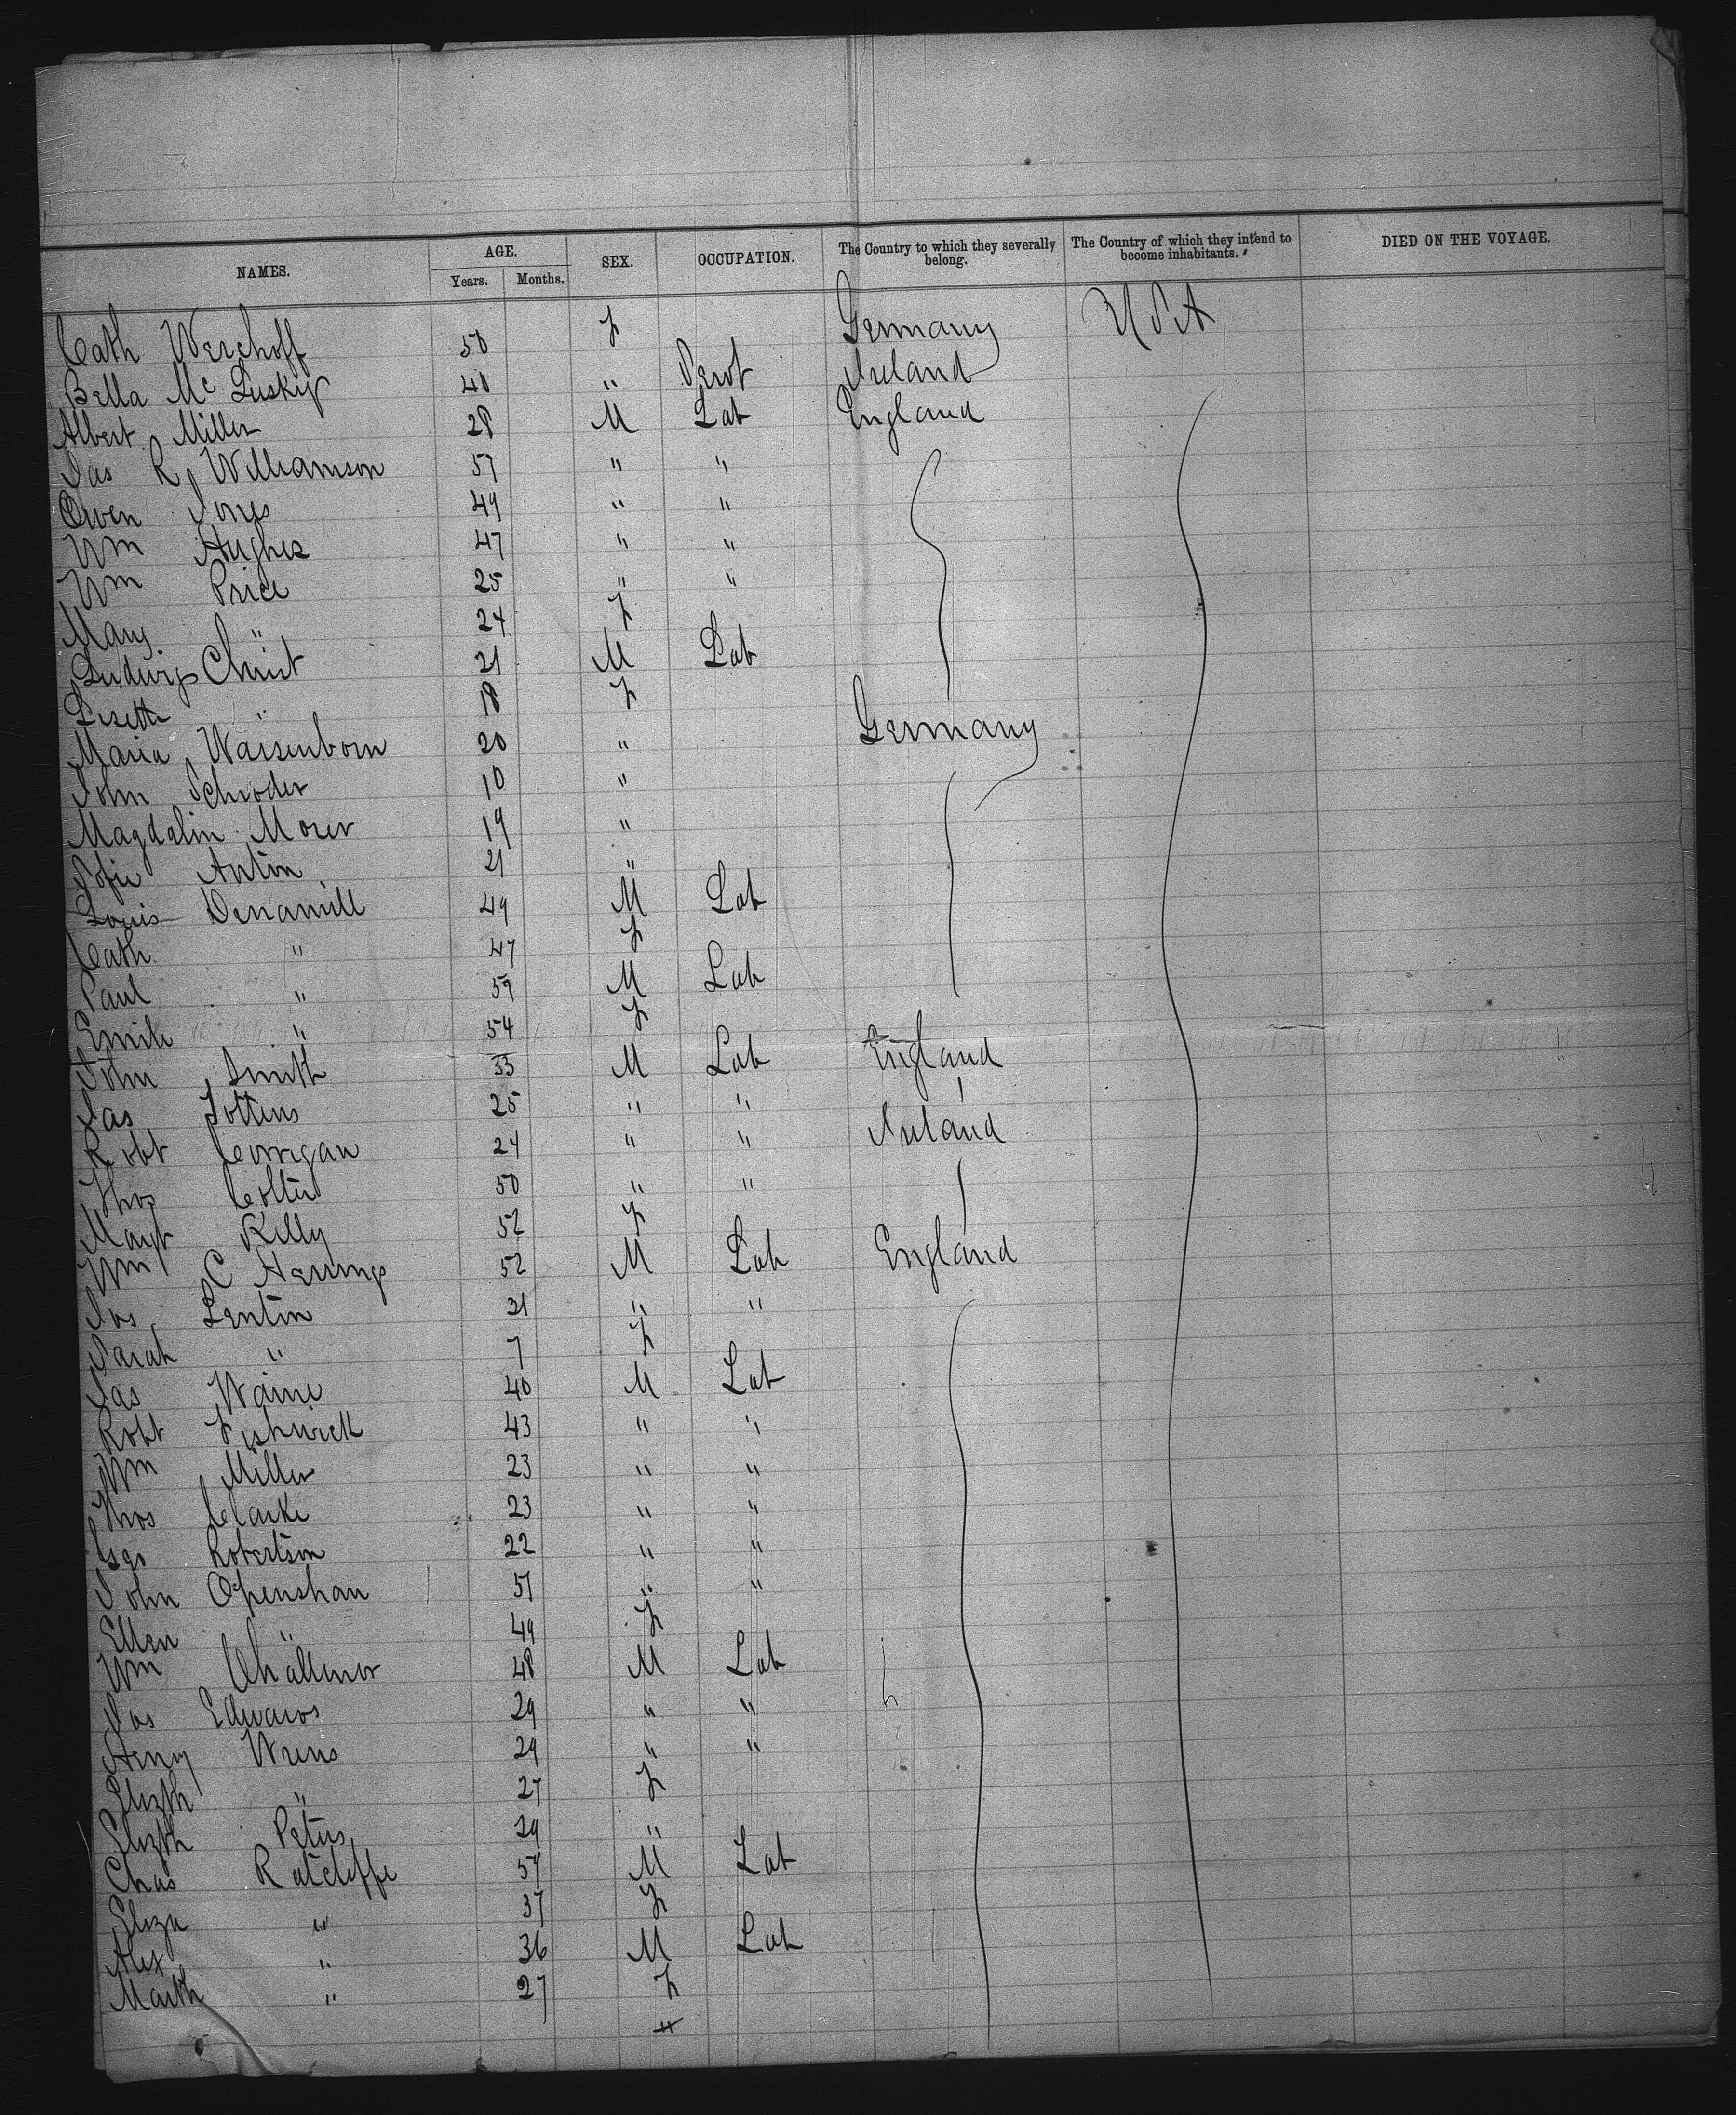 NAMES. AGE. Years. Months. SEX. OCCUPATION. The Country to which they severally belong. The Country of which they intend to become inhabitants. DIED ON THE VOYAGE.
Cath Werchoff 50 F Germany USA
Bella Mc Luskip 40 " Servt Ireland
Albert Miller 28 M Lab England
Jas R Williamson 57 " "
Owen Jones 49 " "
Wm Hughes 47 " "
Wm Price 25 " "
Mary " 24 F
Ludwig Christ 21 M Lab
Lisette " 18 F
Maria Waisenborn 20 " Germany
John Schroder 10 "
Magdalin Moser 19 "
Sofie Anton 21 "
Louis Denamill 49 M Lab
Cath " 47 F
Paul " 59 M Lab
Emile " 54 F
John Smith 33 M Lab England
Jas Tottens 25 " "
Robt Corrigan 24 " " Ireland
Thos Colter 50 " "
Margt Kelly 52 F
Wm C Herring 52 M Lab England
Jos Lenton 31 " "
Sarah " 7 F
Jas Waine 40 M Lab
Robt Fishwick 43 " "
Wm Miller 23 " "
Thos Clarke 23 " "
Geo Robertson 22 " "
John Openshaw 51 " "
Ellen " 49 F
Wm Challenor 48 M Lab
Jos Edwards 29 " "
Henry Wrens 29 " "
Elizth " 27 F
Elizth Peters 29 "
Chas Ratcliffe 57 M Lab
Eliza " 37 F
Alex " 36 M Lab
Marth " 27 F
"